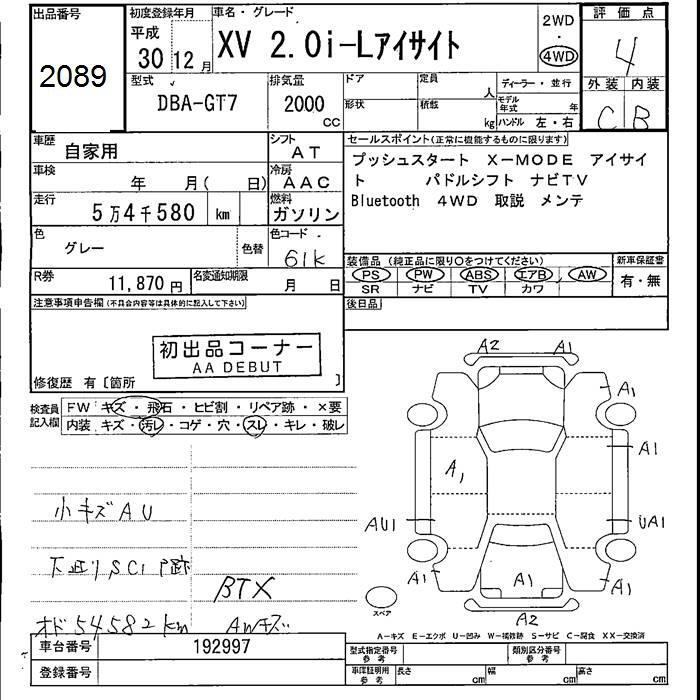 出品番号
2089
初度登録年月
平成
30 12 月
車名・グレード
XV 2.0i-Lアイサイト
2WD
・
4WD
評価点
4
外装 内装
C B
型式
DBA-GT7
排気量
2000
cc
ドア
形状
定員
人
積載
kg
ディーラー・並行
モデル年式 年
ハンドル 左・右
車歴
自家用
シフト
AT
車検
年 月( 日)
冷房
AAC
走行
5万4千580 km
燃料
ガソリン
色
グレー
色替
色コード
61K
R券
11,870円
名変通知期限
月 日
セールスポイント(正常に機能するものに限ります)
プッシュスタート X-MODE アイサイ
ト パドルシフト ナビTV
Bluetooth 4WD 取説 メンテ
装備品(純正品に限り○をつけてください)
PS PW ABS エアB AW
SR ナビ TV カワ
新車保証書
有・無
後日品
注意事項申告欄(不具合内容等は具体的に記入して下さい)
初出品コーナー
AA DEBUT
修復歴 有〔箇所
検査員
記入欄
FW キズ・飛石・ヒビ割・リペア跡・×要
内装 キズ・汚レ・コゲ・穴・スレ・キレ・破レ
小キズAU
下廻りSC1 跡
オド54582km
BTX
AWキズ
A2 A1
A1
A1
A1
AU1 UA1
A1 A1 A1
A2
スペア
A-キズ E-エクボ U-凹み W-補修跡 S-サビ C-腐食 XX-交換済
車台番号
192997
登録番号
型式指定番号
参考
類別区分番号
参考
車庫証明用
参考
長さ cm
幅 cm
高さ cm